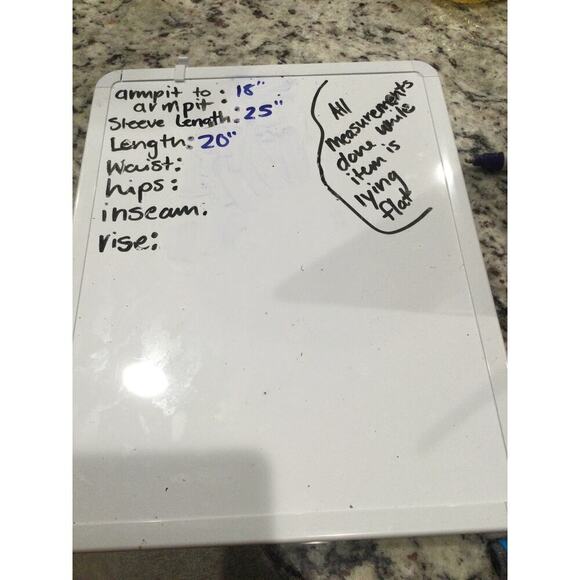 armpit to : 18"
armpit :
Sleeve Length: 25"
Length: 20"
Waist:
hips:
inseam.
rise:
All
measurements
done while
item is
lying
flat